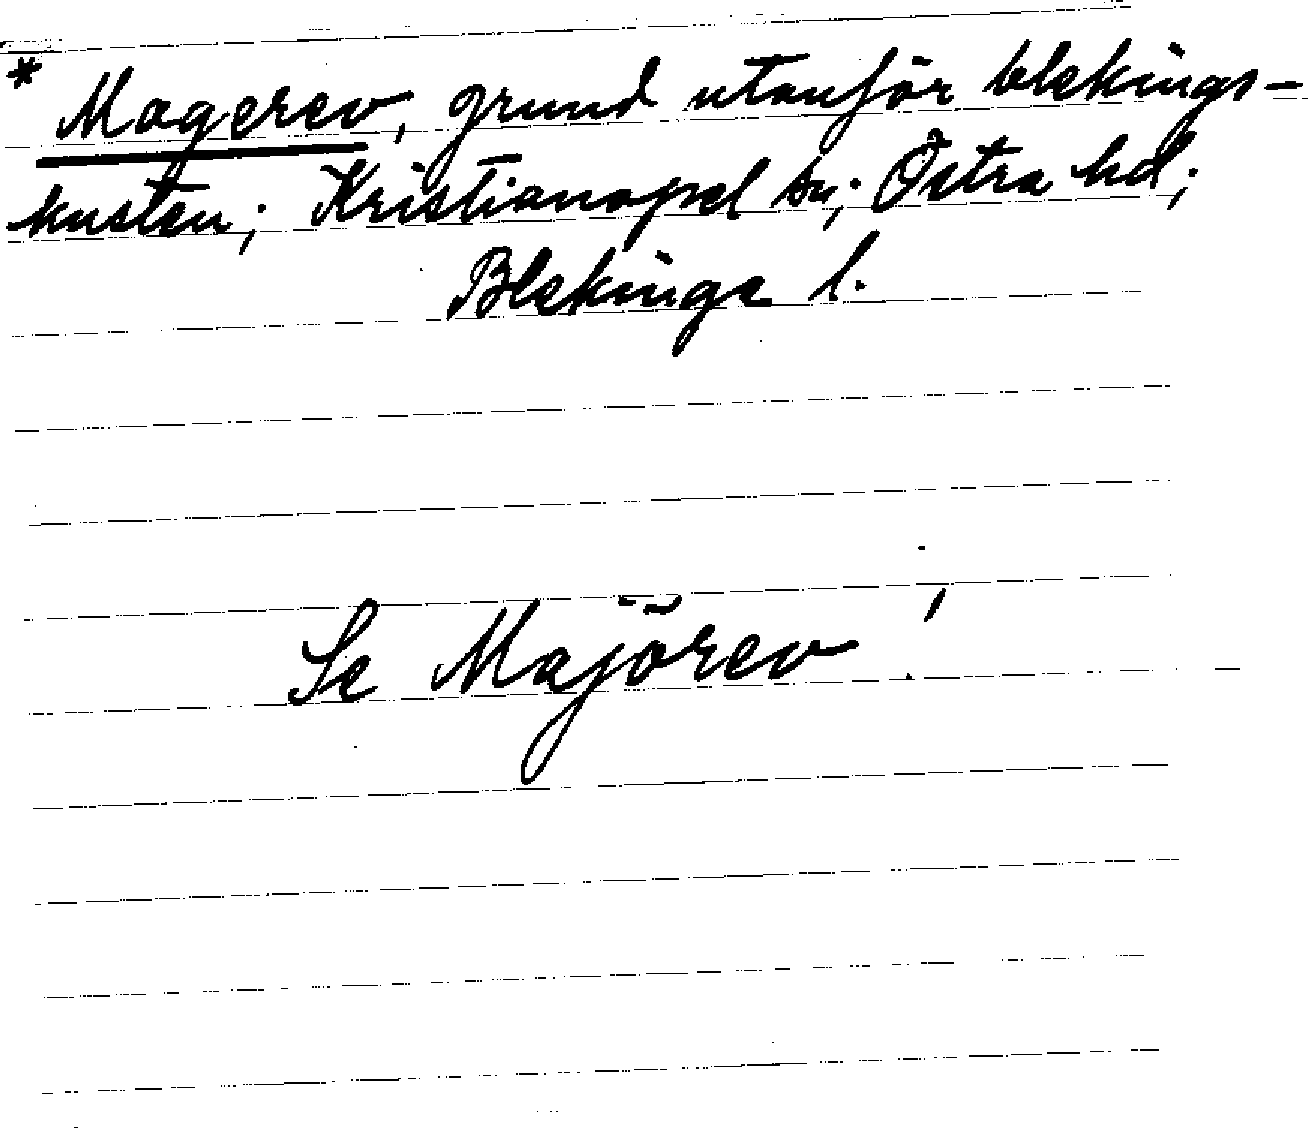 * Magerev, grund utanför blekings-
kusten; Kristianopel sn; Östra hd;
Blekinge l.
Se Majörev!